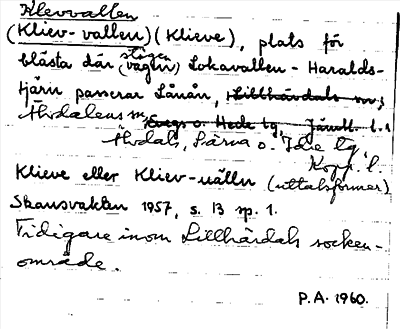 Klevvallen
(Kliev-vallen) (Klieve), plats för
blåsta där stigen (vägen) Lokavallen - Haralds-
tjärn passerar Lånån, Lillhärdals sn,
Älvdalens m, Svegs o. Hede tg, Jämtl. l.
Älvdals, Särna o. Idre tg,
Kopp. l.
Klieve eller Kliev-vålln (uttalsformer)
Skansvakten 1957, s. 13 sp. 1.
Tidigare inom Lillhärdals socken-
område.
P.A. 1960.